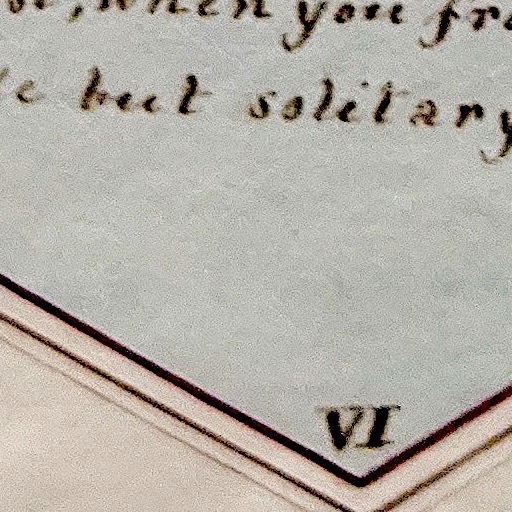 , when you
but solitary
VI